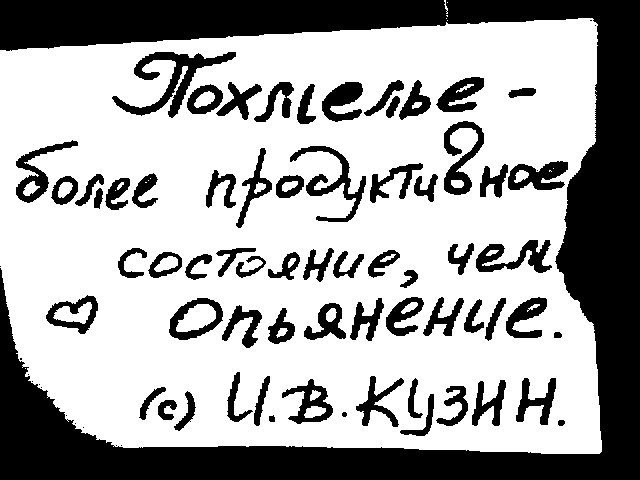 Похмелье -
более продуктивное
состояние, чем
♡ опьянение.
(с) И.В.КУЗИН.